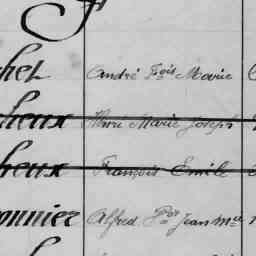 F
chet André Fois Marie
cheux Henri Marie Joseph
cheux François Emile
onnier Alfred Jean Mie